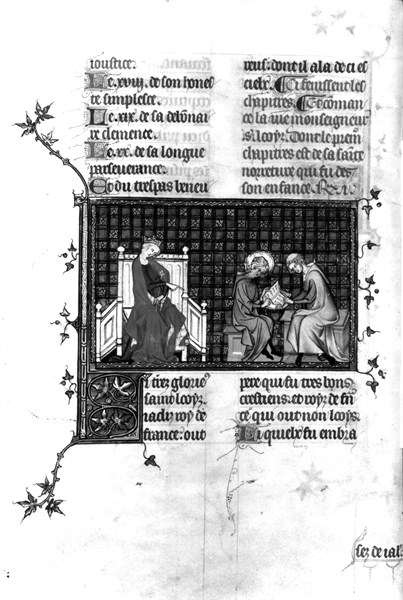 ioustice.
Le .xviij. de son hones
te simplesce.
Le .xix. de sa debonai
re clemence.
Le .xx. de sa longue
perseuerance.
Et du trespas beneu
reus: dont il ala de ci es
ciels. Ci fenissent les
chapitres. Et coman
ce la uie monseigneur
s. looys. Dont le premier
chapitres est de sa sainte
norreture qui fu des
son enfance.
tres glorieus
saint looys
iadis roy de
france: out
pere qui fu tres bons
crestiens. et roys de fran
ce qui out non looys.
Li quiex fu embra
sez de ial